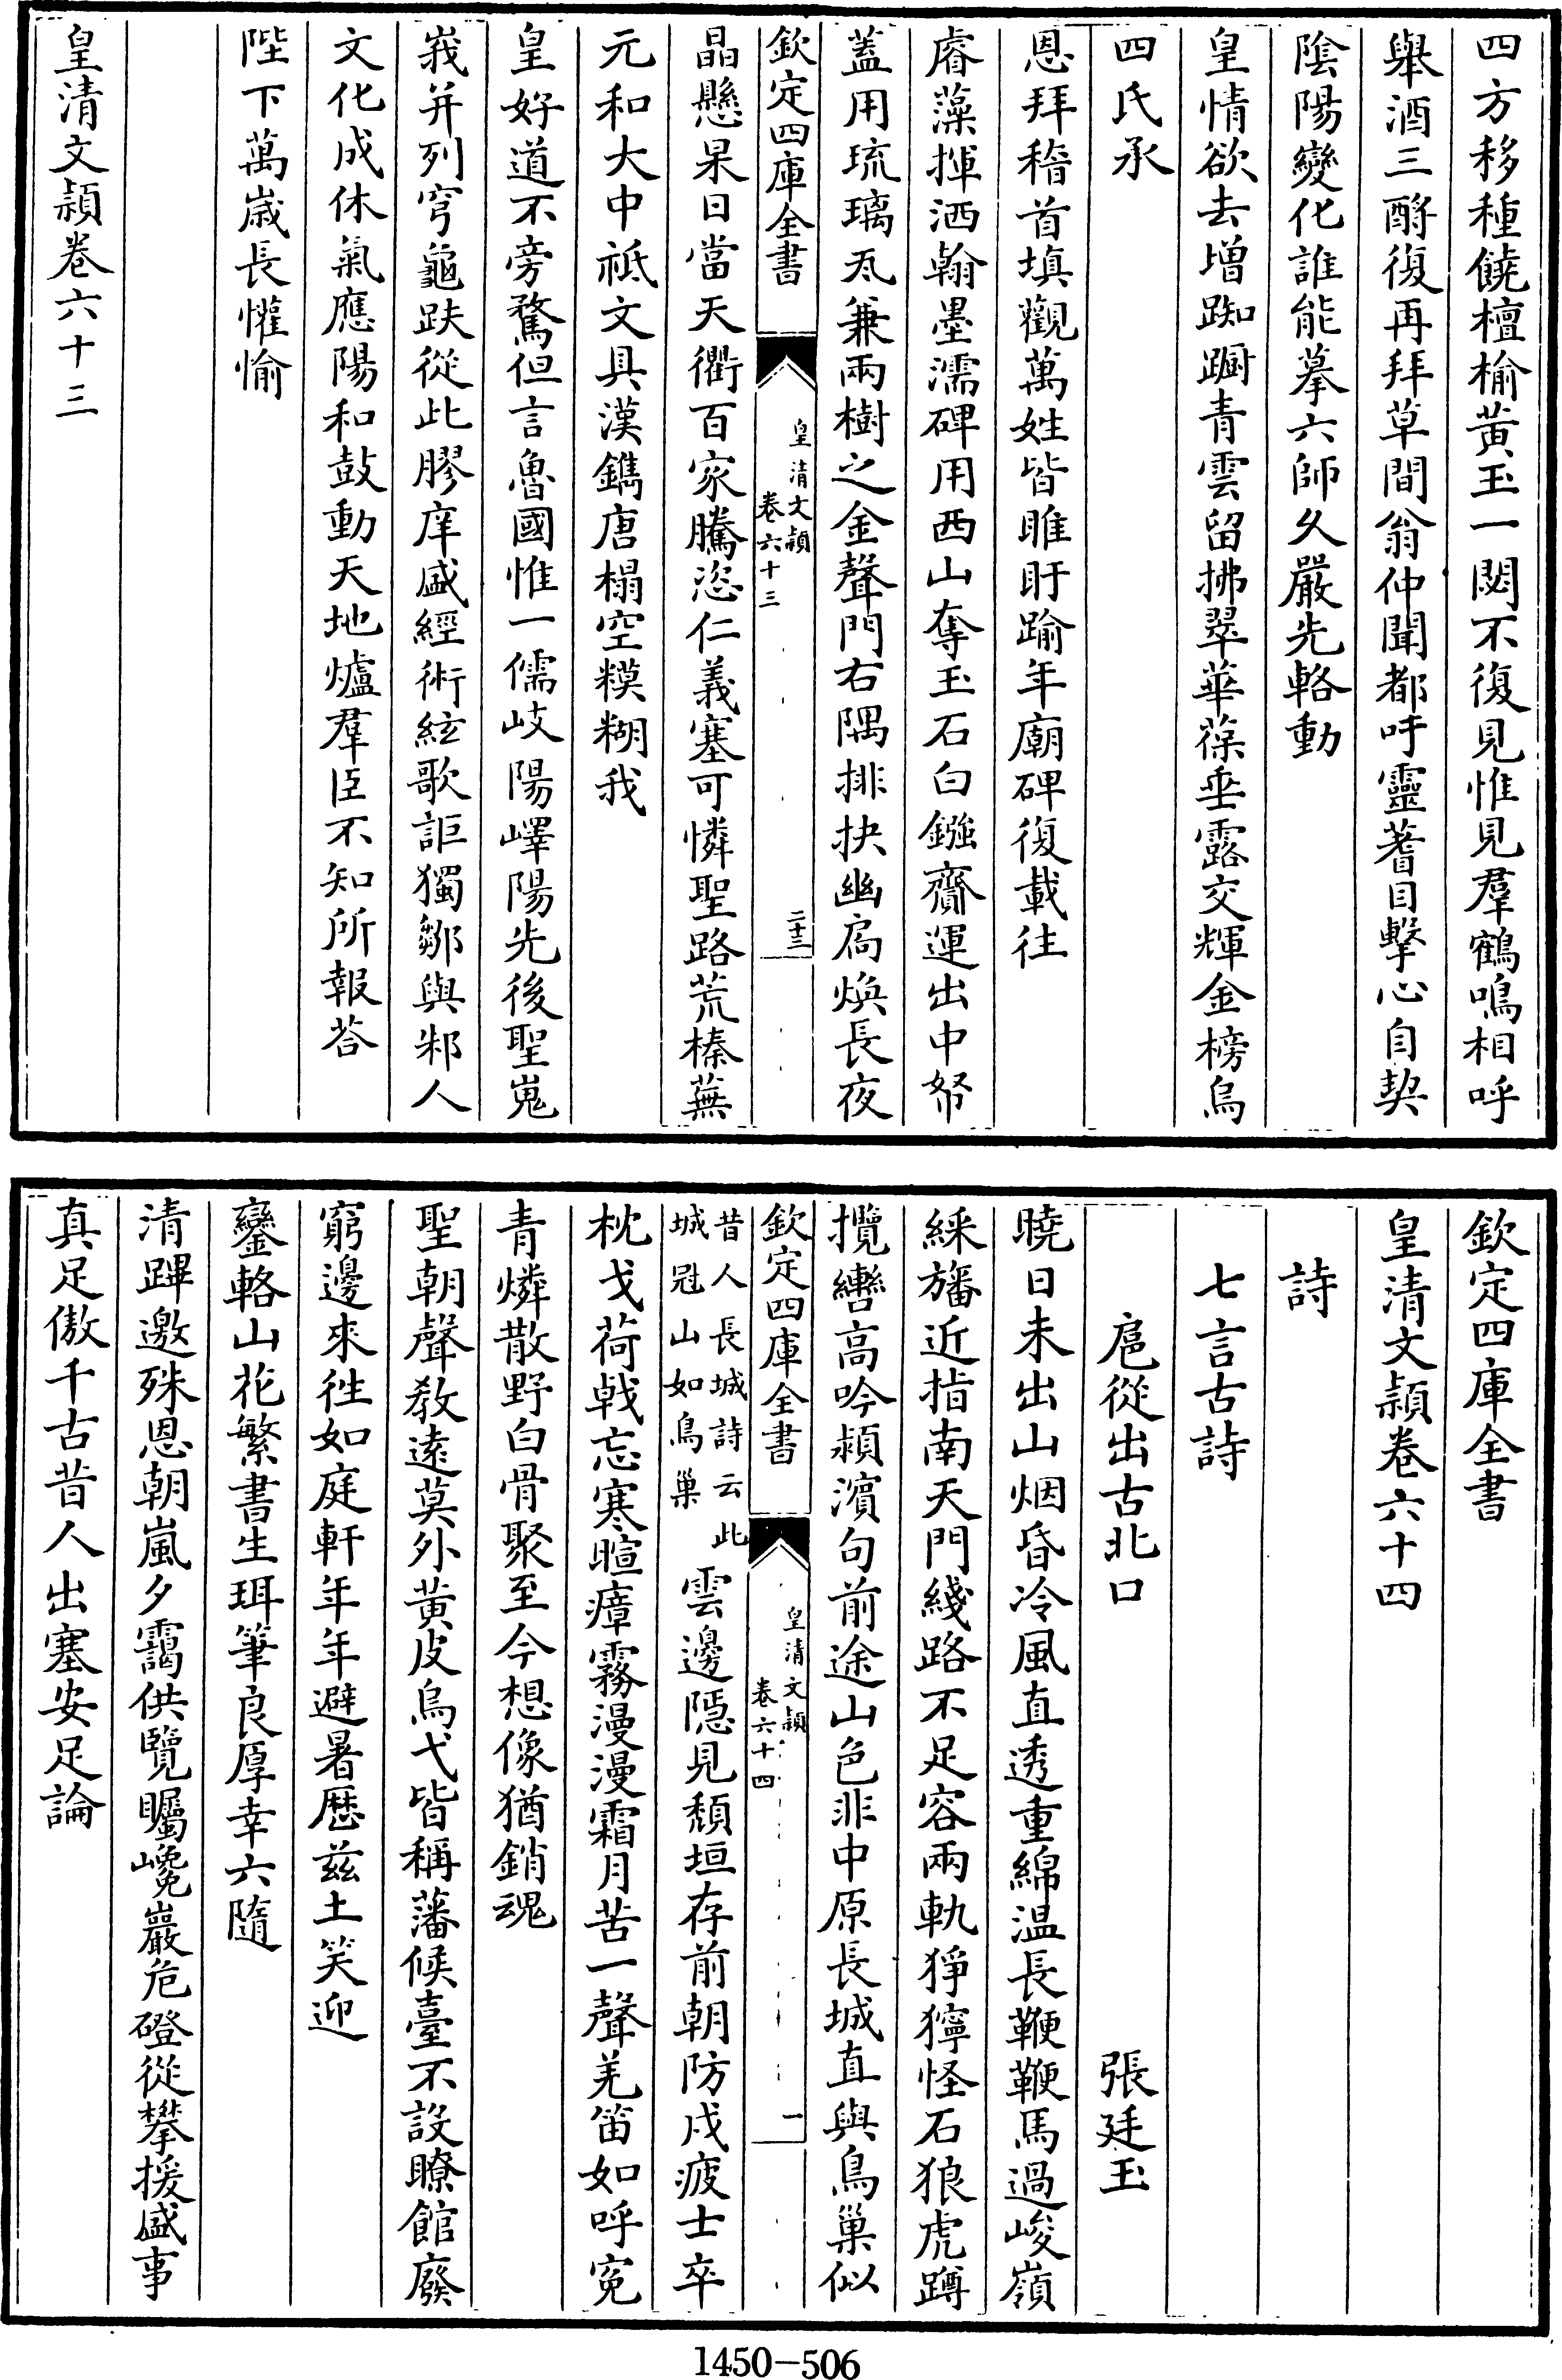 四方移種饒檀榆黃玉一閟不復見惟見羣鶴鳴相呼
舉酒三酹復再拜草間翁仲聞都吁靈蓍目擊心自契
陰陽變化誰能摹六師久嚴先輅動
皇情欲去增踟躕青雲留拂翠華葆垂露交輝金榜烏
四氏承
恩拜稽首填觀萬姓皆睢盱踰年廟碑復載往
睿藻揮洒翰墨濡碑用西山奪玉石白鏹齎運出中帑
蓋用琉璃瓦兼兩樹之金聲門右隅排抉幽扃煥長夜
欽定四庫全書
皇清文穎
卷六十三
二十三
晶懸杲日當天衢百家騰恣仁義塞可憐聖路荒榛蕪
元和大中祗文具漢鐫唐榻空糢糊我
皇好道不旁騖但言魯國惟一儒岐陽嶧陽先後聖嵬
峩并列穹龜趺從此膠庠盛經術絃歌詎獨鄒與邾人
文化成休氣應陽和鼓動天地爐羣臣不知所報荅
陛下萬嵗長懽愉
皇清文穎卷六十三
欽定四庫全書
皇清文穎卷六十四
詩
七言古詩
扈從出古北口
張廷玉
曉日未出山烟昏冷風直透重綿温長鞭鞭馬過峻嶺
綵旛近指南天門綫路不足容兩軌猙獰怪石狼虎蹲
攬轡高吟潁濱句前途山色非中原長城直與鳥巢似
欽定四庫全書
皇清文穎
卷六十四
一
昔人長城詩云此
城冠山如鳥巢
雲邊隱見頽垣存前朝防戍疲士卒
枕戈荷戟忘寒暄瘴霧漫漫霜月苦一聲羌笛如呼寃
青燐散野白骨聚至今想像猶銷魂
聖朝聲教遠莫外黄皮烏弋皆稱藩候臺不設瞭館廢
窮邊來徃如庭軒年年避暑厯兹土笑迎
鑾輅山花繁書生珥筆良厚幸六隨
清蹕邀殊恩朝嵐夕靄供覽矚巉巖危磴從攀援盛事
真足傲千古昔人出塞安足論
1450-506